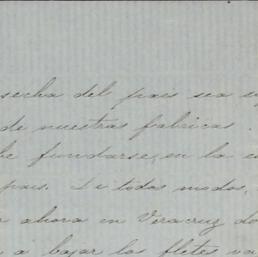 secha del pais sea
de nuestras fabricas.
fundarse, en la
pais. De todos modos,
ahora en Veracruz
a bajar los fletes